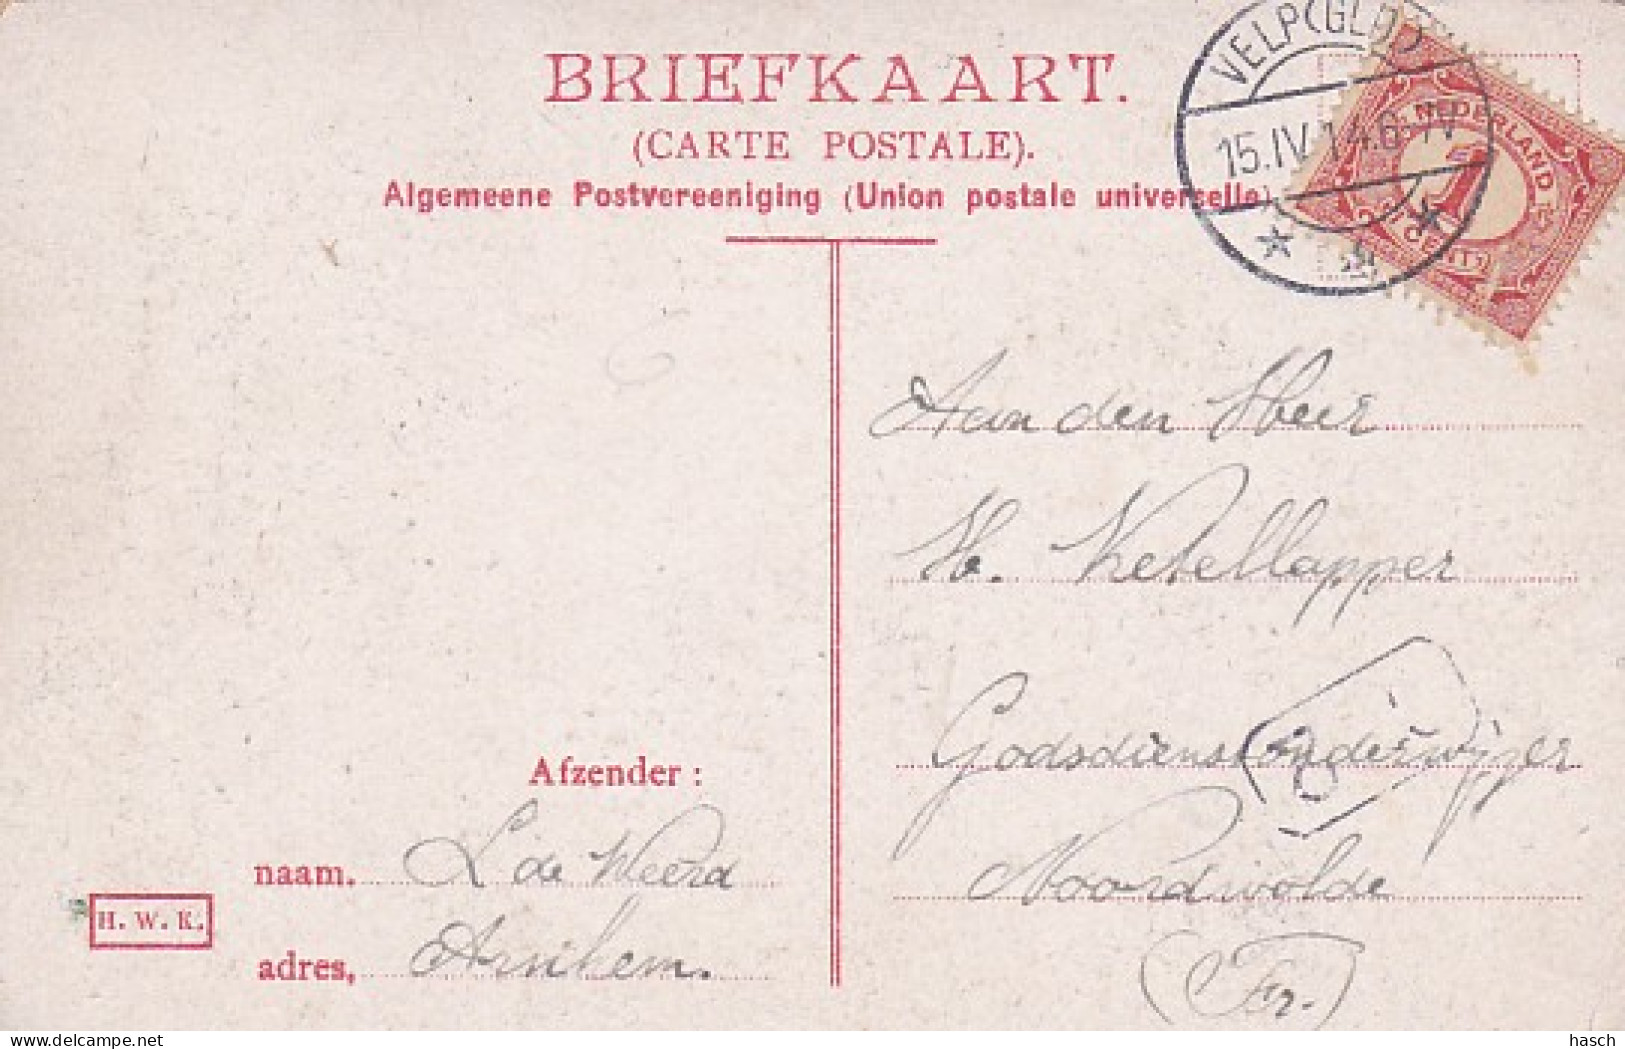 BRIEFKAART.
(CARTE POSTALE).
Algemeene Postvereeniging (Union postale universelle)
VELP (GLD)
15.IV.14.6-7V
NEDERLAND
1
CENT
Aan den Heer
H. Ketellapper
Godsdienstonderwijzer
Noordwolde
(Fr.)
Afzender:
naam, L de Weerd
adres, Arnhem.
H. W. K.
hasch